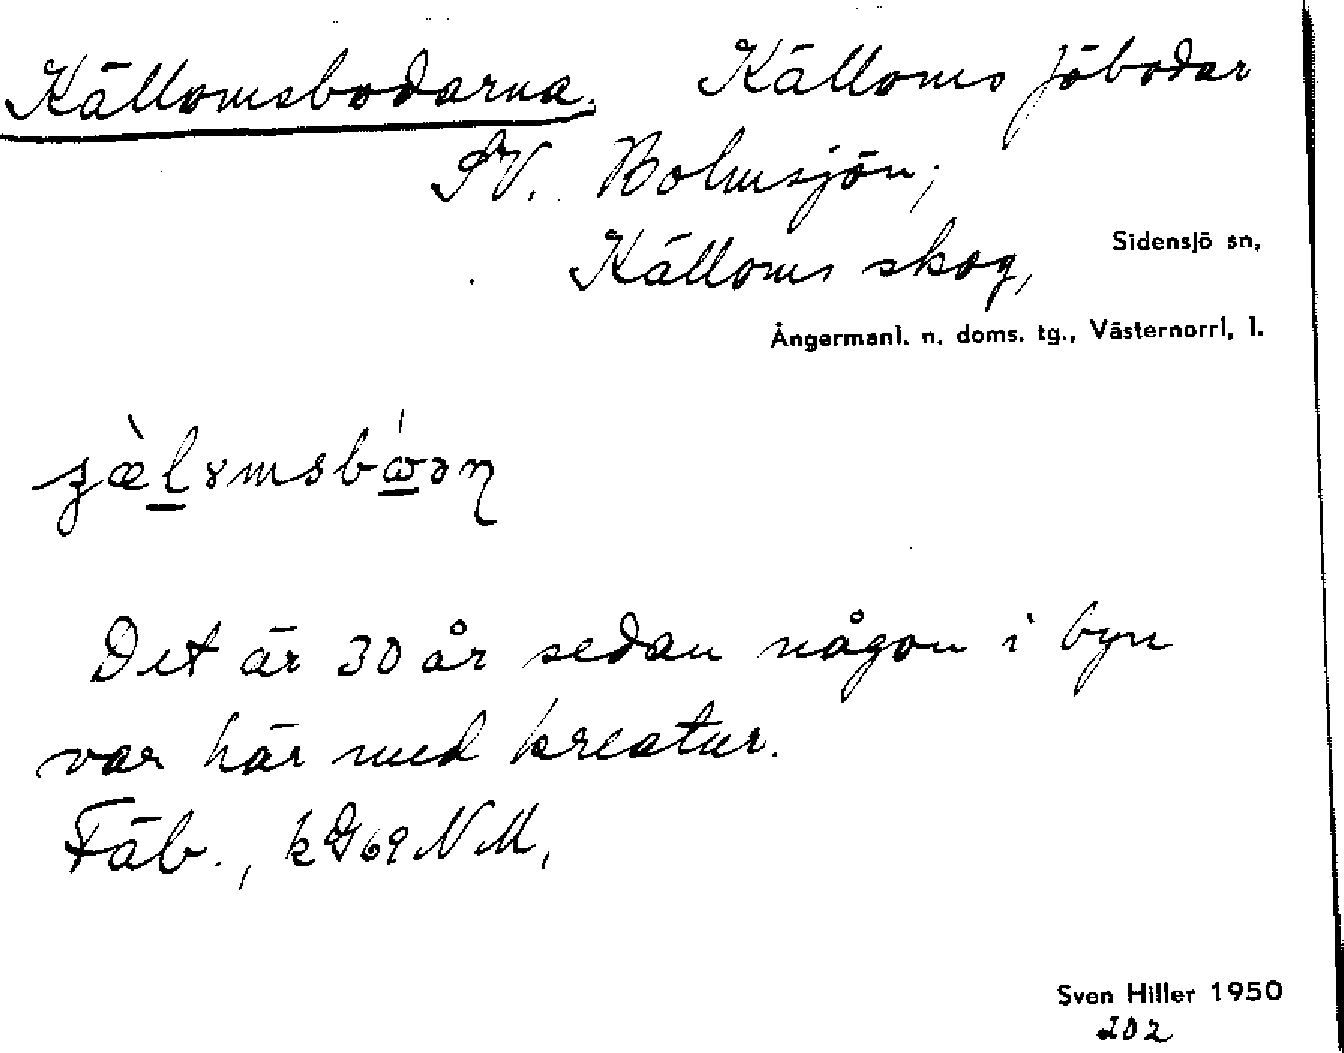 Källomsbodarna. Källoms fäbodar
SV. Bolmsjön;
Källoms skog,
Sidensjö sn,
Ångermanl. n. doms. tg., Västernorrl. l.
Det är 30 år sedan någon i byn
var här med kreatur.
Fäb., kG69NM,
Sven Hiller 1950
202